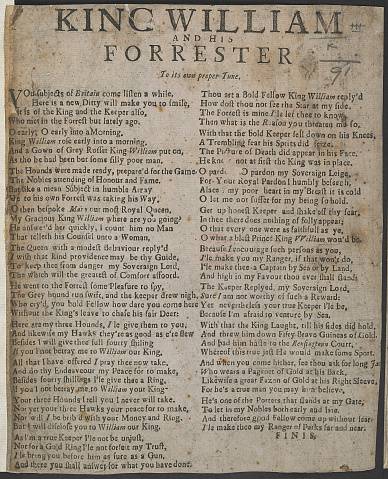 KING WILLIAM
AND HIS
FORRESTER
To its own proper Tune.
You subjects of Britain come listen a while,
Here is a new Ditty will make you to smile,
It is of the King and the Keeper also,
Who met in the Forrest but lately ago.
O early; O early into a Morning,
King William rose early into a morning,
And a Gown of Grey Rosset King William put on,
As tho he had been but some silly poor man.
The Hounds were made ready, prepar'd for the Game
The Nobles attending of Honour and Fame.
But like a mean Subject in humble Array
He to his own Forrest was taking his Way.
O then bespoke Mary our most Royal Queen,
My Gracious King William where are you going?
He answer'd her quickly, I count him no Man
That telleth his Counsel unto a Woman.
The Queen with a modest behaviour reply'd
I wish that kind providence may be thy Guide,
To keep thee from danger my Sovereign Lord,
The which will the greatest of Comfort afford.
He went to the Forrest some Pleasure to spy,
The Grey hound run swift, and the keeper drew nigh,
Who cry'd, you bold Fellow how dare you come here
Without the King's leave to chase his fair Deer:
Here are my three Hounds, I'le give them to you,
And likewise my Hawks they're as good as e're flew
Besides I will give thee full fourty shilling
If you'l not betray me to William our King,
All that I have offered I pray thee now take,
And do thy Endeavour my Peace for to make,
Besides fourty shillings I'le give thee a Ring,
If you'l not betray me, to William our King
Your three Hounds I tell you I never will take,
Nor yet your three Hawks your peace for to make,
Nor will I be brib'd with your Money and Ring.
But I will disclose you to William our King.
As I'm a true Keeper I'le not be unjust,
Nor for a Gold Ring I'le not forfeit my Trust,
I'le bring you before him as sure as a Gun,
And there you shall answer for what you have done.
Thou art a Bold Fellow King William reply'd
How dost thou not see the Star at my side.
The Forrest is mine I'le let thee to know,
Then what is the Reason you threaten me so.
With that the bold Keeper fell down on his Knees,
A Trembling fear his Spirits did seize.
The Picture of Death did appear in his Face.
He knew not at first the King was in place,
O pardon, O pardon my Sovereign Leige,
For Your Royal Pardon I humbly beseech,
Alace! my poor heart in my Breast it is cold
O let me not suffer for my being so bold.
Get up honest Keeper and shake off thy fear.
In thee there does nothing of folly appear;
O that every one were as faithfull as ye.
O what a blest Prince King William would be.
Because I encourage such persons as you,
I'le make you my Ranger, if that won't do,
I'le make thee a Captain by Sea or by Land,
And high in my Favour thou ever shall stand.
The Keeper Replyed, my Sovereign Lord,
Sure I am not worthy of such a Reward:
Yet nevertheless your true Keeper I'le be,
Because I'm afraid to venture by Sea.
With that the King Laugh, till his sides did hold,
And threw him down Fifty brave Guineas of Gold.
And bad him haste to the Kensington Court,
Whereof this true jest He would make some Sport.
And when you come hither, see thou ask for long
Who wears a Pageant of Gold at his Back,
Likewise a great Faxon of Gold at his Right Sleeve,
For he's a true man you may him believe.
He's one of the Porters that stands at my Gate,
To let in my Nobles both early and late.
And therefore good Fellow come up without fear
I'le make thee my Ranger of Parks far and near.
FINIS.